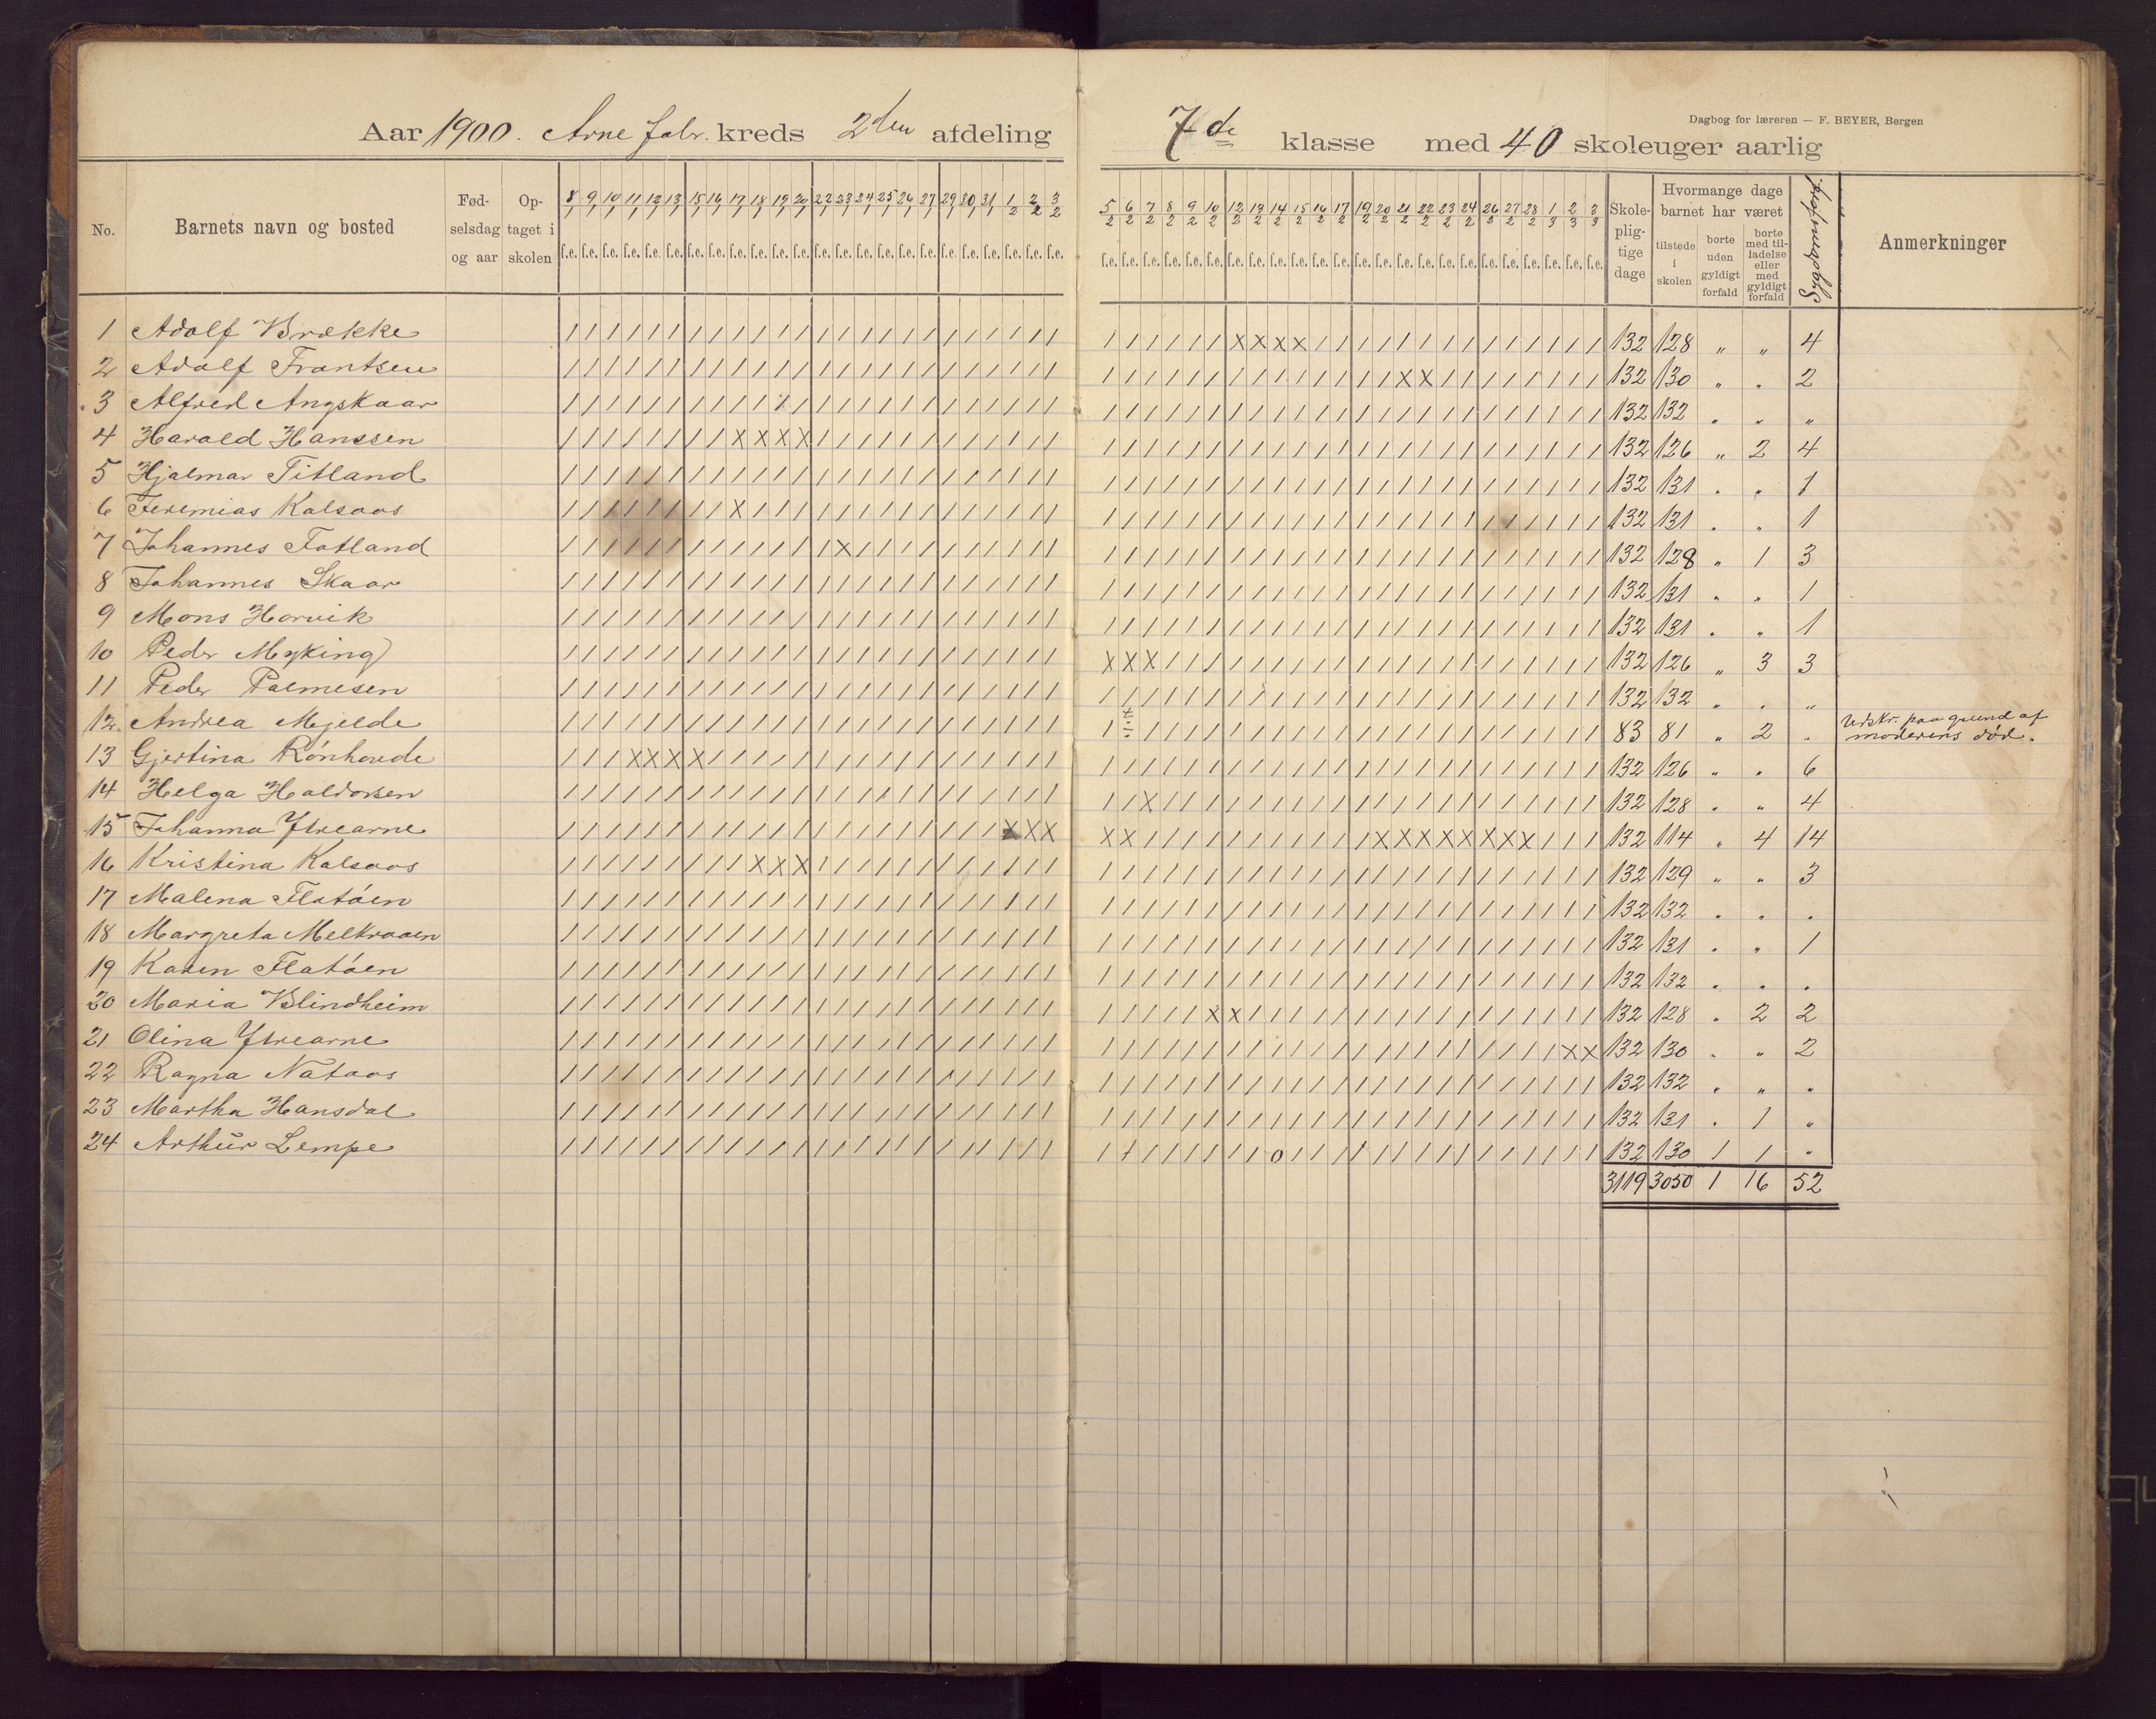 Dagbog for læreren — F. BEYER, Bergen
Aar 1900. Arne fabr. kreds 2den afdeling 7de klasse med 40 skoleuger aarlig
No. Barnets navn og bosted Fød-selsdag og aar Op-taget i skolen 8/1 9/1 10/1 11/1 12/1 13/1 15/1 16/1 17/1 18/1 19/1 20/1 22/1 23/1 24/1 25/1 26/1 27/1 29/1 30/1 31/1 1/2 2/2 3/2 5/2 6/2 7/2 8/2 9/2 10/2 12/2 13/2 14/2 15/2 16/2 17/2 19/2 20/2 21/2 22/2 23/2 24/2 26/2 27/2 28/2 1/3 2/3 3/3 Skole-plig-tige dage Hvormange dage barnet har været tilstede i skolen borte uden gyldigt forfald borte med til-ladelse eller med gyldigt forfald Sygdomsforf. Anmerkninger
1 Adolf Brække 132 128 " " 4
2 Adolf Frantsen 132 130 " " 2
3 Alfred Angskaar 132 132 " " "
4 Harald Hanssen 132 126 " 2 4
5 Hjalmar Titland 132 131 " " 1
6 Jeremias Kalsaas 132 131 " " 1
7 Johannes Fotland 132 128 " 1 3
8 Johannes Skaar 132 131 " " 1
9 Mons Horvik 132 131 " " 1
10 Peder Myking 132 126 " 3 3
11 Peder Palmesen 132 132 " " "
12. Andrea Mjelde 83 81 " 2 " Udskr. paa grund af
moderens død.
13 Gjertina Rónhovde 132 126 " " 6
14 Helga Haldorsen 132 128 " " 4
15 Johanna Ytrearne 132 114 " 4 14
16 Kristina Kalsaas 132 129 " " 3
17 Malena Flatóen 132 132 " " "
18 Margreta Melkraaen 132 131 " " 1
19 Karen Flatóen 132 132 " " "
20 Maria Blindheim 132 128 " 2 2
21 Olina Ytrearne 132 130 " " 2
22 Ragna Nataas 132 132 " " "
23 Martha Hansdal 132 131 " 1 "
24 Arthur Lempe 132 130 1 1 "
3119 3050 1 16 52